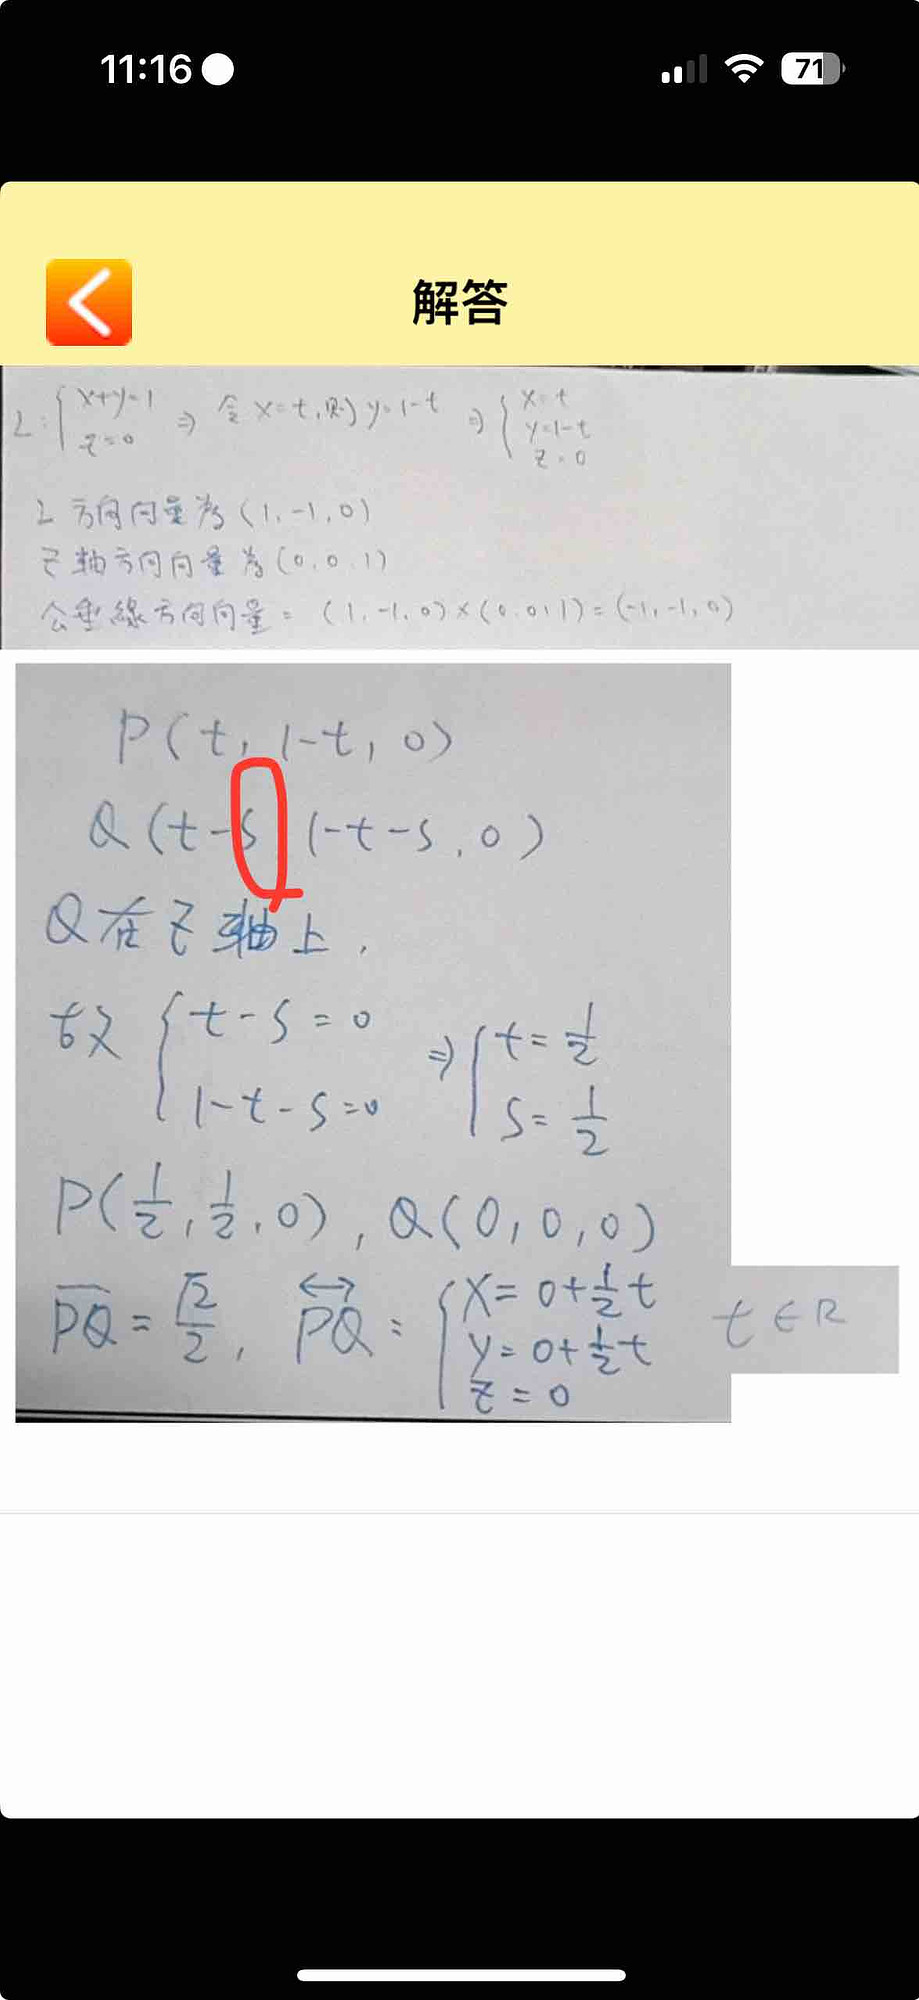 11:16
71
解答
L:{x+y=1 z=0 ⇒ 令x=t,則y=1-t ⇒ {x=t y=1-t z=0
L方向向量為(1,-1,0)
z軸方向向量為(0,0,1)
公垂線方向向量=(1,-1,0)×(0,0,1)=(-1,-1,0)
P(t,1-t,0)
Q(t-s,1-t-s,0)
Q在z軸上,
故{t-s=0 1-t-s=0 ⇒ {t=1/2 s=1/2
P(1/2,1/2,0),Q(0,0,0)
PQ=√2/2, PQ:{x=0+1/2t y=0+1/2t z=0 t∈R